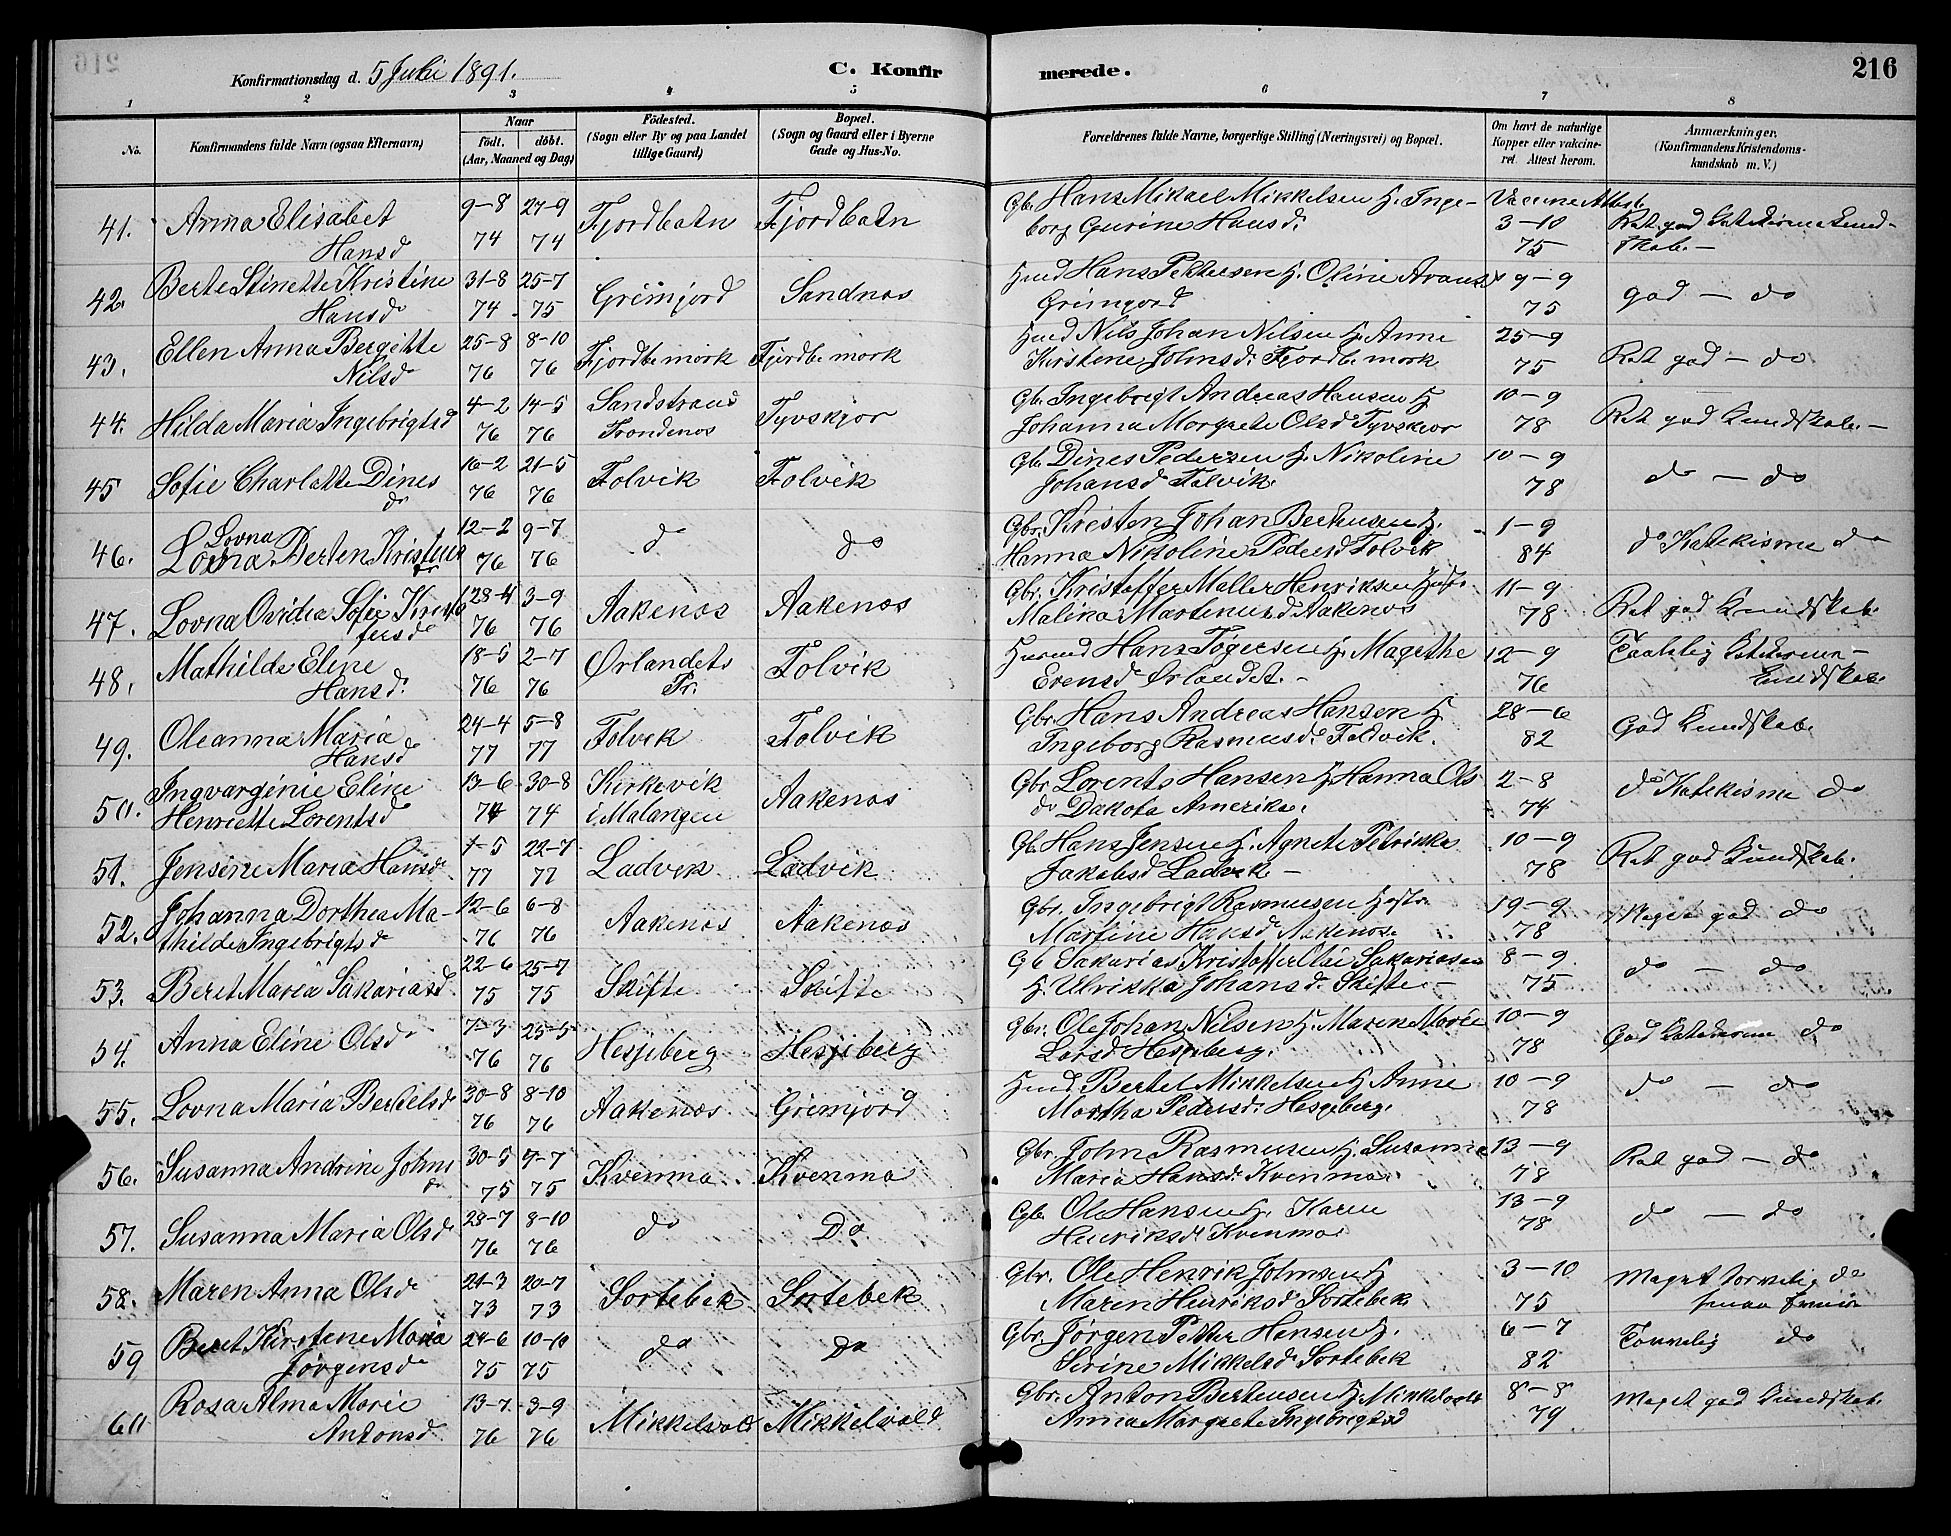 216
Konfirmationsdag d. 5 Juli 1891.
C. Konfirmerede.
1 2 3 4 5 6 7 8
No.
Konfirmandens fulde Navn (ogsaa Efternavn)
Naar
födt. döbt.
(Aar, Maaned og Dag)
Födested.
(Sogn eller By og paa Landet
tillige Gaard)
Bopæl.
(Sogn og Gaard eller i Byerne
Gade og Hus-No.
Forældrenes fulde Navne, borgerlige Stilling (Næringsvei) og Bopæl.
Om havt de naturlige
Kopper eller vakcine-
ret. Attest herom.
Anmærkninger.
(Konfirmandens Kristendoms-
kundskab m.V.)
41. Anna Elisabet 9-8 27-9 Fjordbotn Fjordbotn Gb. Hans Mikael Mikkelsen H. Inge-
Hansd 74 74 borg Gurine Hansd. 3-10 75 Ret god
skab.-
42. Berte Stinette Kristine 31-8 25-7 Grimjord Sandnos Hans Pettersen H. Oline 9-9 god - do
Hansd 74 75 Grimjord 75
43. Ellen Anna Bergitte 25-8 8-10 Fjordb. mork Fjordb. mork Nils Johan Nilsen H. Anne 25-9 Ret god - do
Nilsd 76 76 Kirstine Johnsd. Fjordb. mork 75
44. Hilda Maria Ingebrigtsd 4-2 14-5 Sandstrand Tyvskjor Gb. Ingebrigt Andreas Hansen H 10-9 Ret god Kundskab.-
76 76 Trondenos Johanna Morgrete Olsd Tyvskjor 78
45 Sofie Charlotte Dines 16-2 21-5 Folvik Folvik Gb. Dines Pedersen H. Nikoline 10-9 do - do
d 76 76 Johansd Folvik. 78
46. Lovna
Lovna Berten Kristens 12-2 9-7 do do Gbr. Kristen Johan Berteusen H. 1-9 do Katekisme do
76 76 Hanna Nikoline Pedersd Folvik 84
47. Lovna Ovidia Sofie Kristo 28-4 3-9 Aakenos Aakenos Gbr. Kristoffer Moller Henriksen 11-9 Ret god Kundskab.
fersd 76 76 Malina Martinusd Aakenos 78
48. Mathilde Eline 18-5 2-7 Ørlandets Folvik Hans Tøgersen H. Magrethe 12-9 Taalelig
Hansd. 76 76 Pr. Erensd Ørlandet.- 76 Kundskab.
49. Oleanna Maria 24-4 5-8 Folvik Folvik Gbr. Hans Andreas Hansen H 28-6 God Kundskab.
Hansd 77 77 Ingeborg Rasmusd. Foldvik. 82
50. Ingvarginie Eline 13-6 30-8 Kirkevik Aakenos Gbr Lorents Hansen H Hanna Ols 2-8 do Katekisme do
Henriette Lorentsd 74 74 i Malangen do Dakota Amerika. 74
51. Jensine Maria Hansd 1-5 22-7 Ladvik Ladvik Gb. Hans Jensen H. Agnete Petrikke 10-9 Ret god Kundskab.
77 77 Jakobsd Ladvik - 78
52. Johanna Dorthea Ma- 12-6 6-8 Aakenos Aakenos Gbr. Ingebrigt Rasmusen 19-9 Meget god do
thilde Ingebrigtsd 76 76 Martine Hansd Aakenos. 78
53. Beret Maria Sakariasd 22-6 25-7 Skifte Skifte Gb Sakarias Kristoffer Sakariasen 8-9 do - do
75 75 H. Ulrikka Johansd. Skifte - 75
54. Anna Eline Olsd 7-3 25-5 Hesjeberg Hesjeberg Gbr. Ole Johan Nilsen H. Maren Marie 10-9 God do
76 76 Larsd Hesjeberg. 78
55. Lovna Maria Bertelsd 30-8 8-10 Aakenos Grimjord Bertel Mikkelsen H Anne 10-9 do - do
76 76 Martha Pedersd. Hesgeberg. 78
56. Susanna Andrine Johns 30-5 7-7 Kvenma Kvenma Gbr. John Rasmusen H. Susanna 13-9 Ret god - do
d 75 75 Maria Hansd. Kvenmo. 78
57. Susanna Maria Olsd 28-7 8-10 do Do Gb. Ole Hansen H. Karen 13-9 do - do
76 76 Henriksd Kvenmo. 78
58. Maren Anna Olsd 24-3 20-7 Sortebek Sortebek Gbr. Ole Henrik Johnsen H 3-10 Meget tarvelig do
73 73 Maren Henriksd Sortebek 75
59 Beret Kirstine Maria 24-6 10-10 do Do Gbr. Jørgen Petter Hansen H. 6-7 Tarvelig do
Jørgensd 75 75 Serine Mikkelsd Sortebek 82
60 Rosa Alma Marie 13-7 3-9 Mikkelvold Mikkelvold Gbr. Anton Bertensen H Mikkelvold 8-8 Meget god Kundskab.
Antonsd. 76 76 Anna Margrete Ingebrigtsd 79